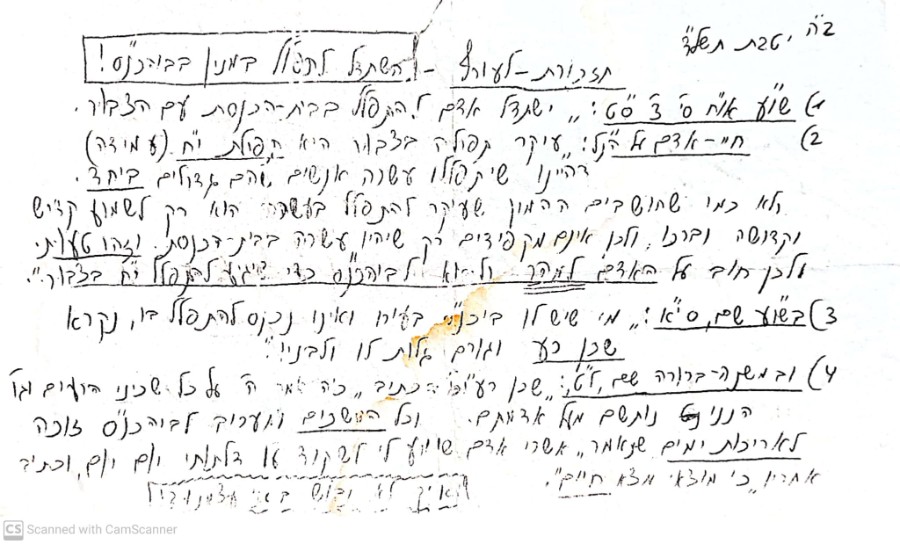 ב"ה י' טבת תשל"ד
תזכורת-לעורף - השתדל להתפלל במנין בביהכנ"ס!
1) שו"ע או"ח ס' צ' ס"ט: "ישתדל אדם להתפלל בבית-הכנסת עם הצבור.
2) חיי-אדם על הנ"ל: "עיקר תפולה בצבור היא תפולת י"ח (עמידה)
דהיינו שיתפללו עשרה אנשים שהם גדולים ביחד.
ולא כמו שחושבים ההמון שעיקר להתפלל בעשרה הוא רק לשמוע קדיש
וקדושה וברכו, ולכן אינם מקפידים רק שיהיו עשרה בבית-הכנסת. וזהו טעות.
ולכן חוב על האדם למהר ולבוא לביהכנ"ס כדי שיגיע להתפלל י"ח בצבור".
3) בשו"ע שם, ס"א: "מי שיש לו ביכנ"ס בעירו ואינו נכנס להתפלל בו, נקרא
שכן רע וגורם גלות לו ולבניו".
4) ובמשנה-ברורה שם, ל"ט: "שכן רע וכו' כתיב "כה אמר ה' על כל שכיני הרעים וגו'
הנני נותשם מעל אדמתם. וכל המשכים ומעריב לביהכנ"ס זוכה
לאריכות ימים שנאמר "אשרי אדם שומע לי לשקוד על דלתותי יום יום, וכתיב
אחריו "כי מוצאי מצא חיים".
ואיך לא נבוש
Scanned with CamScanner